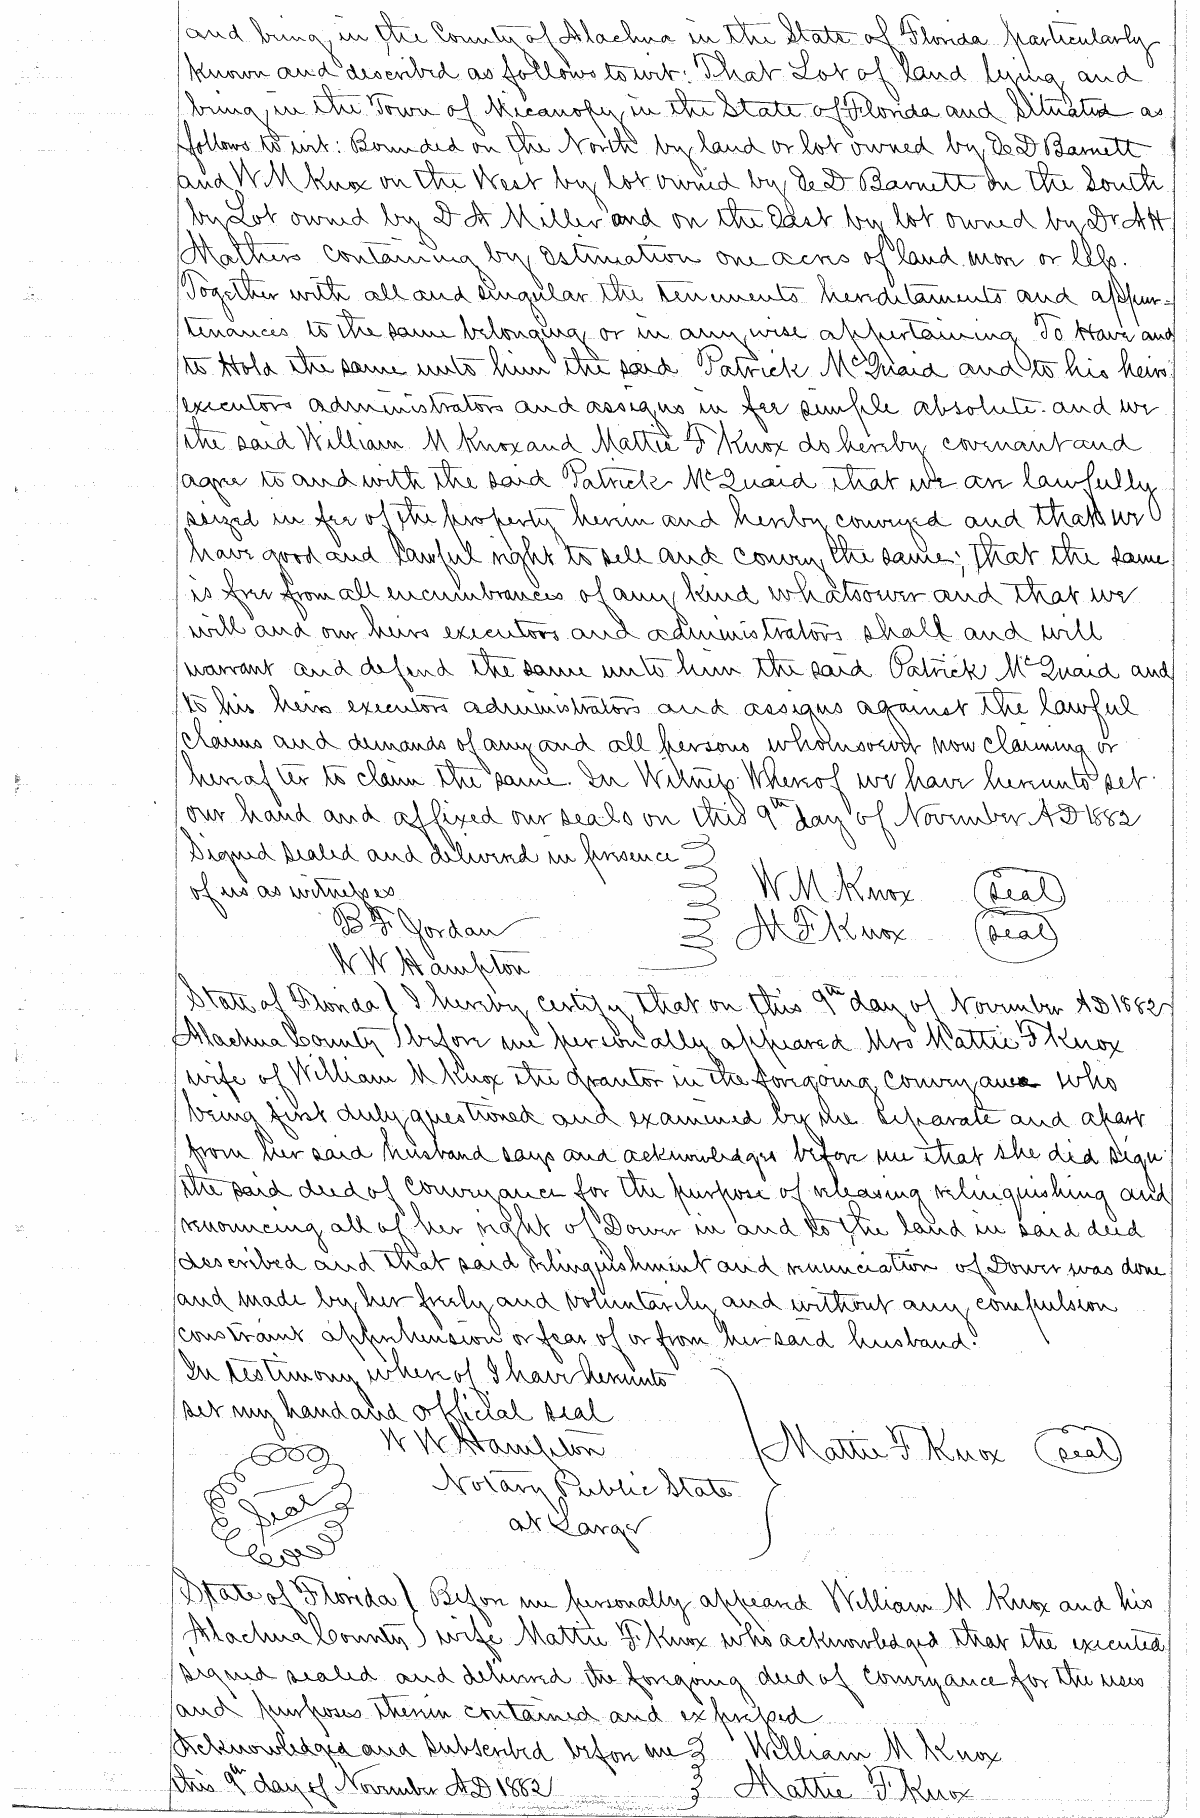 and being in the County of Alachua in the State of Florida particularly
known and described as follows to wit: That Lot of land lying and
being in the Town of Micanopy in the State of Florida and Situated as
follows to wit: Bounded on the North by land or lot owned by De D Barnett
and W M Knox on the West by lot owned by De D Barnett on the South
by Lot owned by D A Miller and on the East by lot owned by Dr A H
Mathers containing by estimation one acres of land more or less.
Together with all and singular the tenements hereditaments and appur=
tenances to the same belonging or in any wise appertaining To Have and
to Hold the same unto him the said Patrick McQuaid and to his heirs
executors administrators and assigns in fee simple absolute. and we
the said William M Knox and Mattie F Knox do hereby covenant and
agree to and with the said Patrick McQuaid that we are lawfully
seized in fee of the property herein and hereby conveyed and that we
have good and lawful right to sell and convey the same; That the same
is free from all encumbrances of any kind whatsoever and that we
will and our heirs executors and administrators shall and will
warrant and defend the same unto him the said Patrick McQuaid and
to his heirs executors administrators and assigns against the lawful
claims and demands of any and all persons whomsoever now claiming or
hereafter to claim the same. In Witness Whereof we have hereunto set
our hand and affixed our seals on this 9th day of November A D 1882
Signed sealed and delivered in presence
of us as witnesses
W M Knox (Seal)
B F Jordan
M F Knox (Seal)
W W Hampton
State of Florida ( I hereby certify that on this 9th day of November A D 1882
Alachua County ) before me personally appeared Mrs Mattie F Knox
wife of William M Knox the grantor in the foregoing conveyance who
being first duly questioned and examined by me separate and apart
from her said husband says and acknowledges before me that she did sign
the said deed of conveyance for the purpose of releasing relinquishing and
renouncing all of her right of Dower in and to the land in said deed
described and that said relinquishment and renunciation of Dower was done
and made by her freely and voluntarily and without any compulsion
constraint apprehension or fear of or from her said husband.
In testimony where of I have hereunto
set my hand and official seal
W W Hampton
Mattie F Knox (Seal)
Notary Public State
Seal
at Large
State of Florida ( Before me personally appeared William M Knox and his
Alachua County ) wife Mattie F Knox who acknowledged that the executed
signed sealed and delivered the foregoing deed of conveyance for the uses
and purposes therein contained and expressed
Acknowledged and subscribed before me William M Knox
this 9th day of November A D 1882 Mattie F Knox